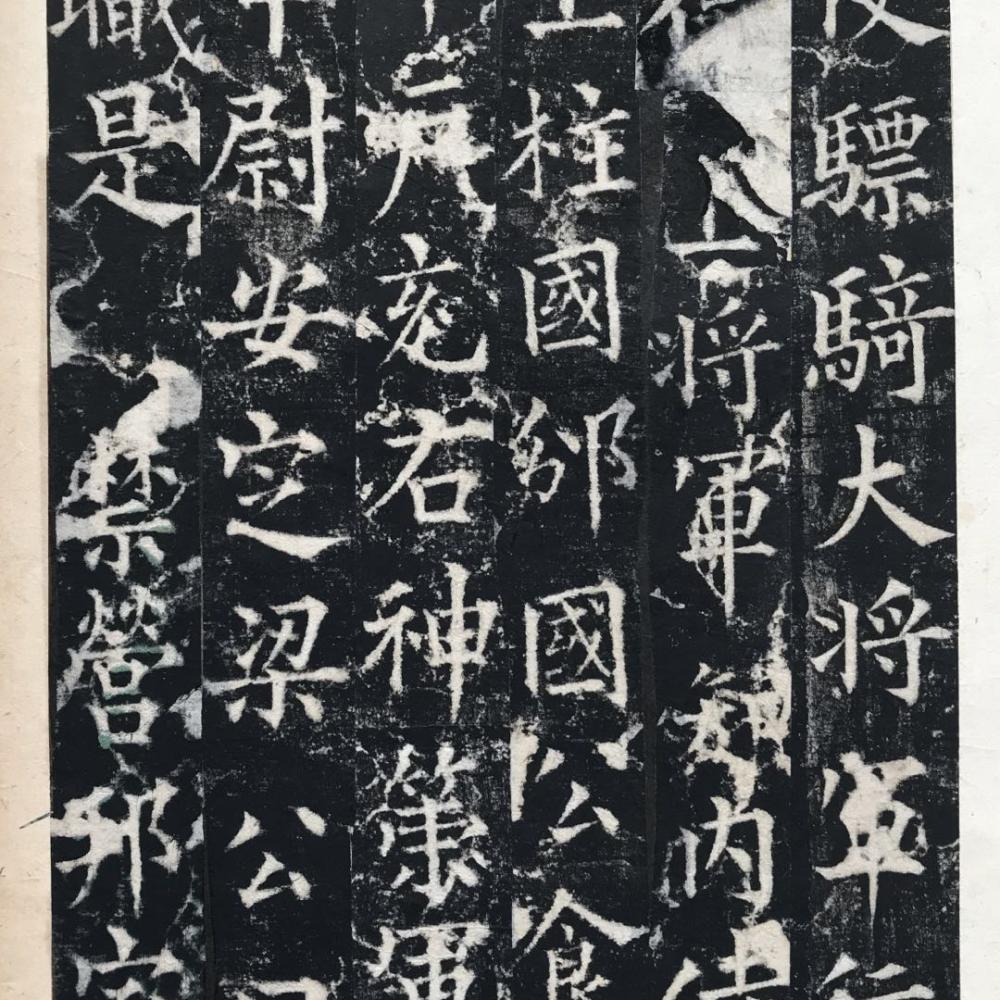 驃騎大將軍行
上將軍知內侍
上柱國邠國公食
户充右神策軍
中尉安定梁公
職是禁營